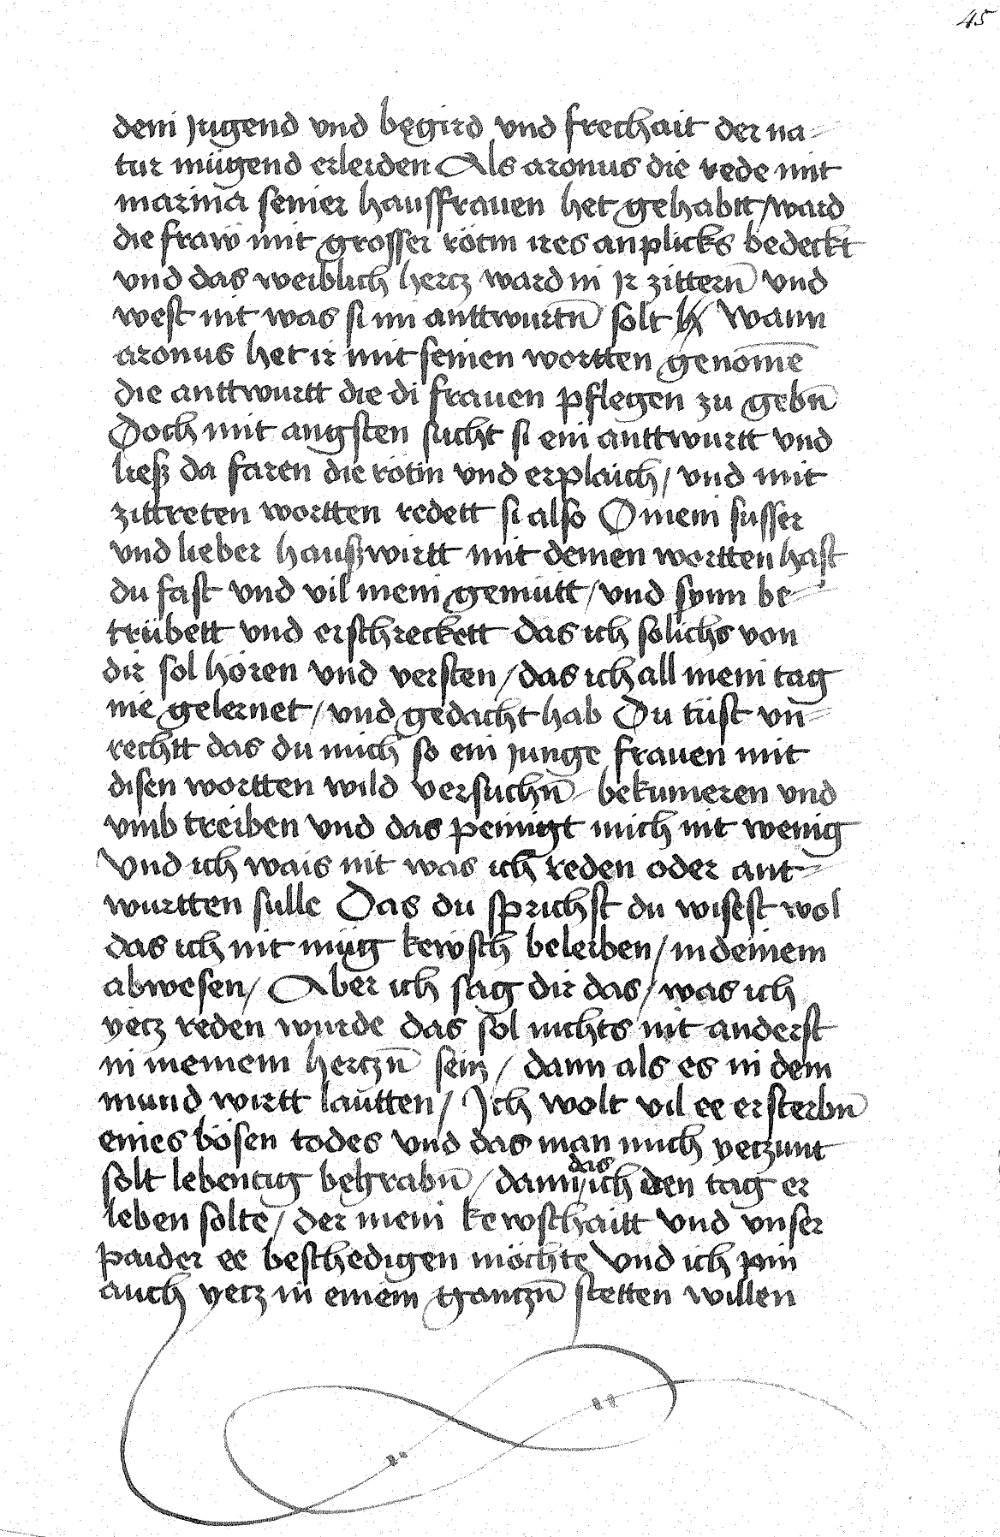 45
dein jugend vnd begird vnd frechait der na-
tur mügend erleiden Als aronus die rede mit
marina seiner haussfrauen het gehabtt / ward
die fraw mit grosser rötin ires anplicks bedeckt
vnd das weiblich hercz ward in Ir zittern̄ vnd
west nit was si im anttwurtn̄ solt Wann
aronus het ir mit seinen wortten genom̄e
die anttwurtt die di frauen pflegen zu gebn̄
Doch mit angsten sucht si ein anttwurtt vnd
liesz da faren die rötin vnd erplaich / vnd mit
zittreten wortten redett si also O mein susser
vnd lieber hauszwirtt mit deinen wortten hast
du fast vnd vil mein gemütt / vnd synn be-
trübett vnd erschreckett das ich solichs von
dir sol hören vnd versten / das ich all mein tag
nie gelernet / vnd gedacht hab Du tüst vn̄-
rechtt das du mich so ein junge frauen mit
disen wortten wild versuchn̄ bekumeren vnd
vmb treiben vnd das peinigt mich nit wenig
Vnd ich wais nit was ich reden oder ant-
wurtten sulle Das du sprichst du wisest wol
das ich nit müg kewsch beleiben / in deinem
abwesen / Aber ich sag dir das / was ich
yecz reden wurde das sol nichts nit anderst
in meinem herczn̄ sein / dann als es in dem
mund wirtt lautten / Ich wolt vil ee ersterbn̄
eines bösen todes vnd das man mich yeczunt
solt lebentig begrabn̄ / dann das ich den tag er
leben solte / der mein kewschaitt vnd vnser
paider ee beschedigen möchte Vnd ich pin
auch yecz in einem ganczn̄ stetten willen